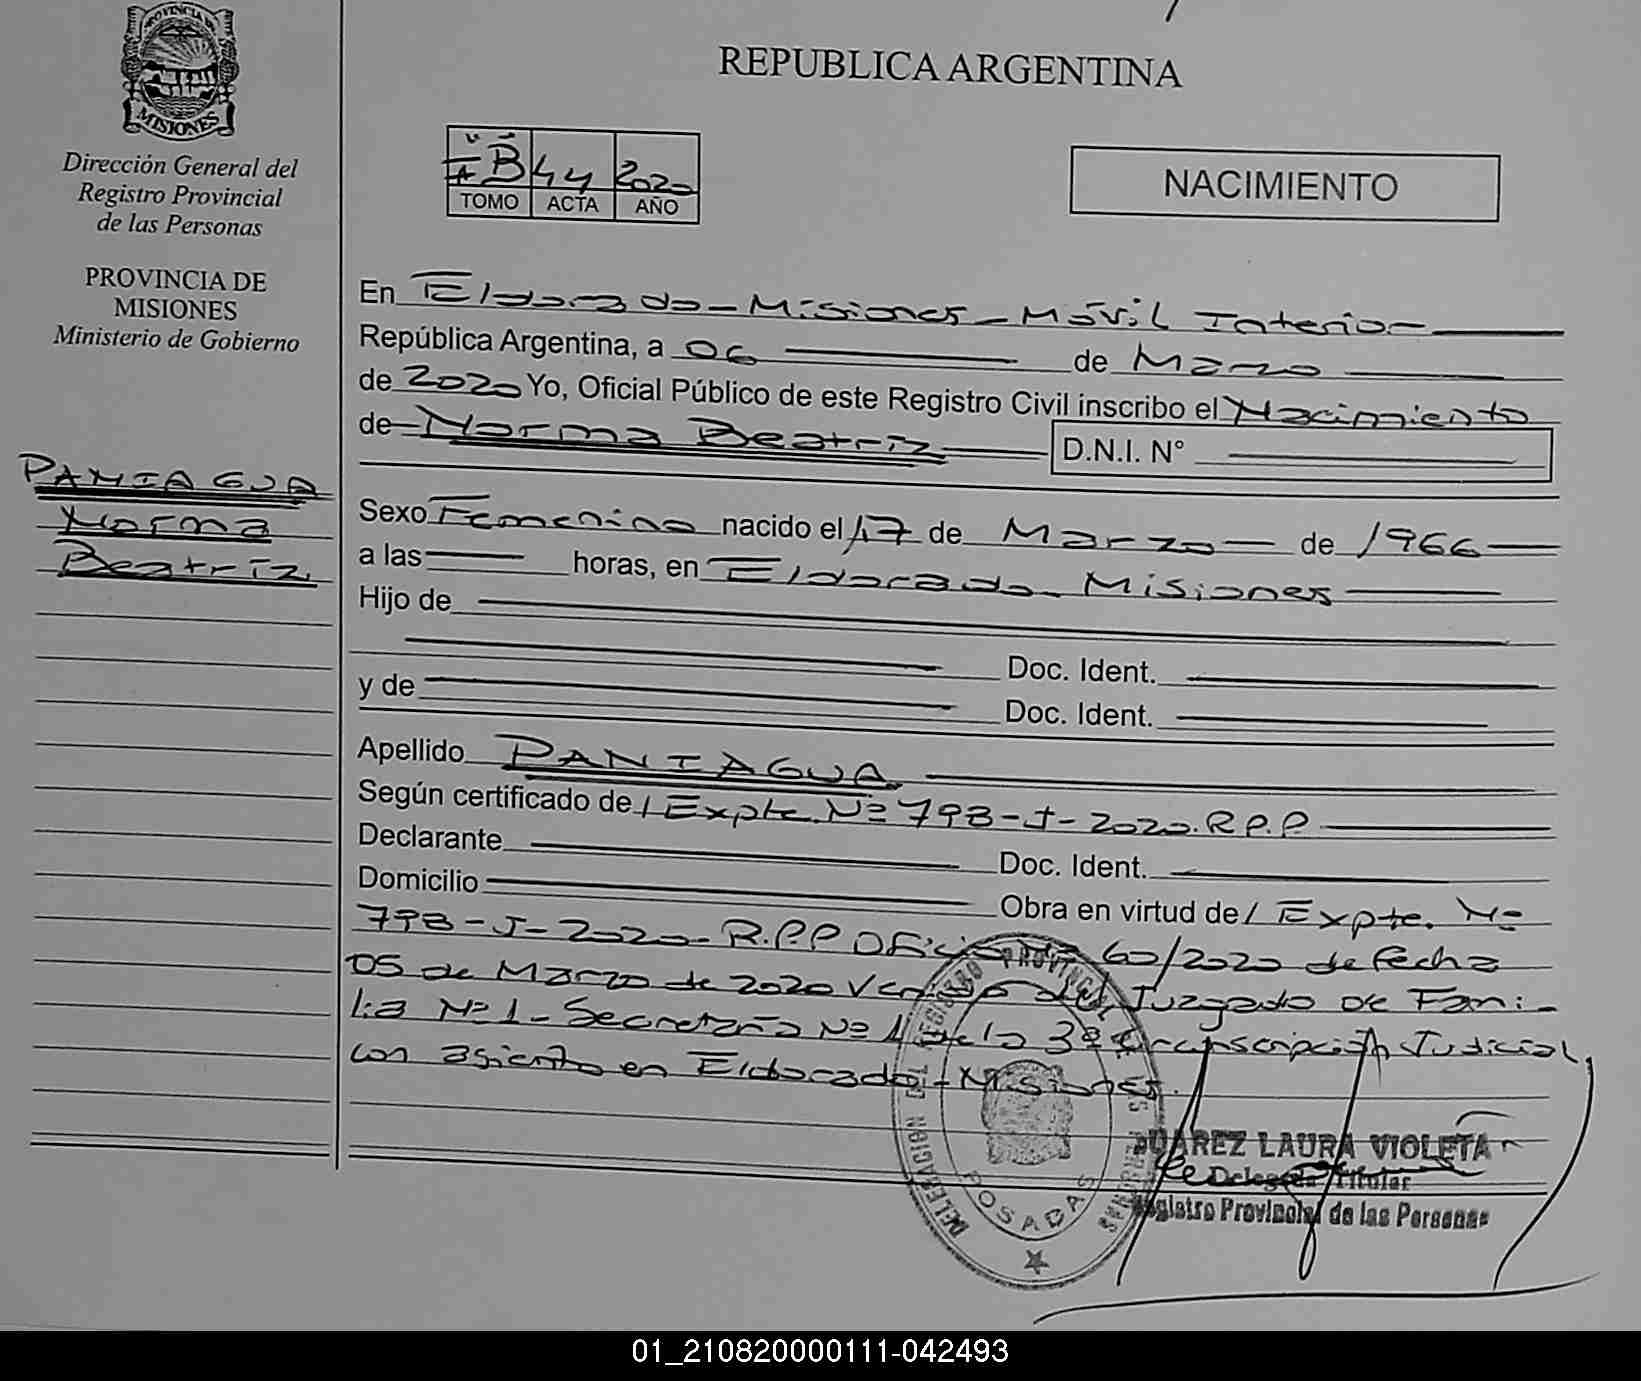 PROVINCIA DE
MISIONES
Dirección General del
Registro Provincial
de las Personas
PROVINCIA DE
MISIONES
Ministerio de Gobierno
PANIAGUA
Norma
Beatriz
REPUBLICA ARGENTINA
"B" 44 2020
TOMO ACTA AÑO
NACIMIENTO
En Eldorado - Misiones - Móvil Interior
República Argentina, a 06 de Marzo
de 2020 Yo, Oficial Público de este Registro Civil inscribo el Nacimiento
de Norma Beatriz D.N.I. N°
Sexo Femenino nacido el 17 de Marzo de 1966
a las horas, en Eldorado - Misiones
Hijo de
Doc. Ident.
y de
Doc. Ident.
Apellido PANIAGUA
Según certificado de Expte. Nº 798-J-2020. R.P.P
Declarante Doc. Ident.
Domicilio Obra en virtud de Expte. Nº
798-J-2020- R.P.P Oficio Nº 60/2020 de fecha
05 de Marzo de 2020 Venido del Juzgado de Fami-
lia Nº 1 - Secretaría Nº 1 de la 3º Circunscripción Judicial,
con asiento en Eldorado - Misiones.
DELEGACION DEL REGISTRO PROVINCIAL DE LAS PERSONAS
POSADAS
SUAREZ LAURA VIOLETA
Delegada Titular
Registro Provincial de las Personas
01_210820000111-042493